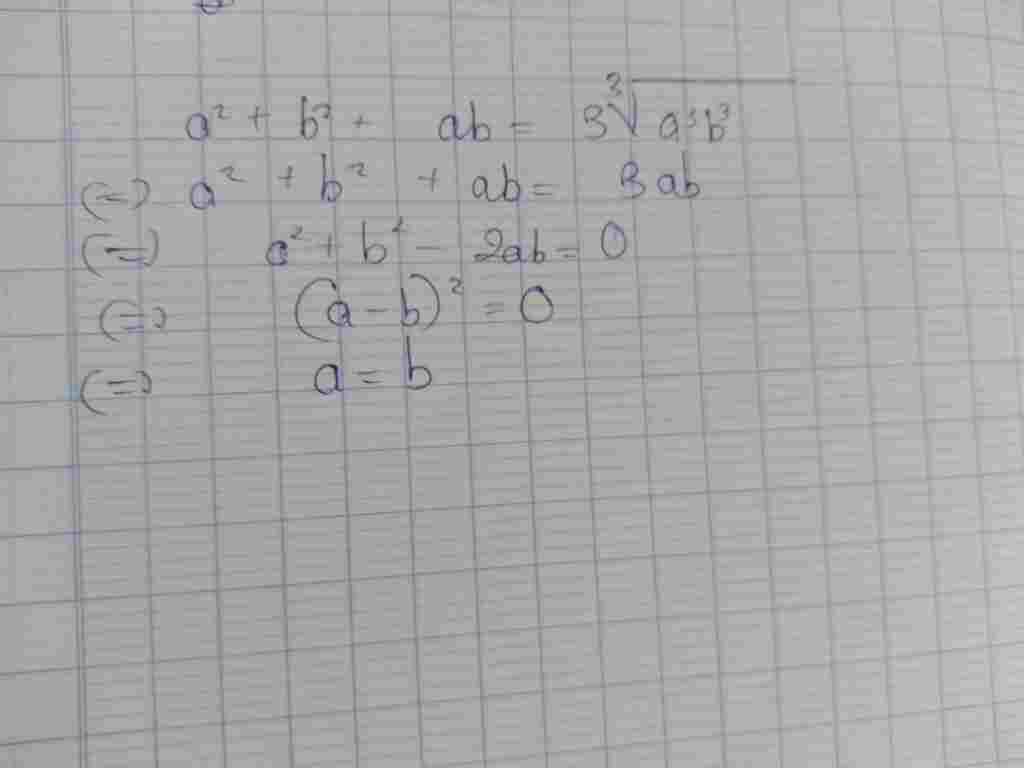 a² + b² + ab = 3∛(a³b³)
(=) a² + b² + ab = 3ab
(=) a² + b² - 2ab = 0
(=) (a - b)² = 0
(=) a = b